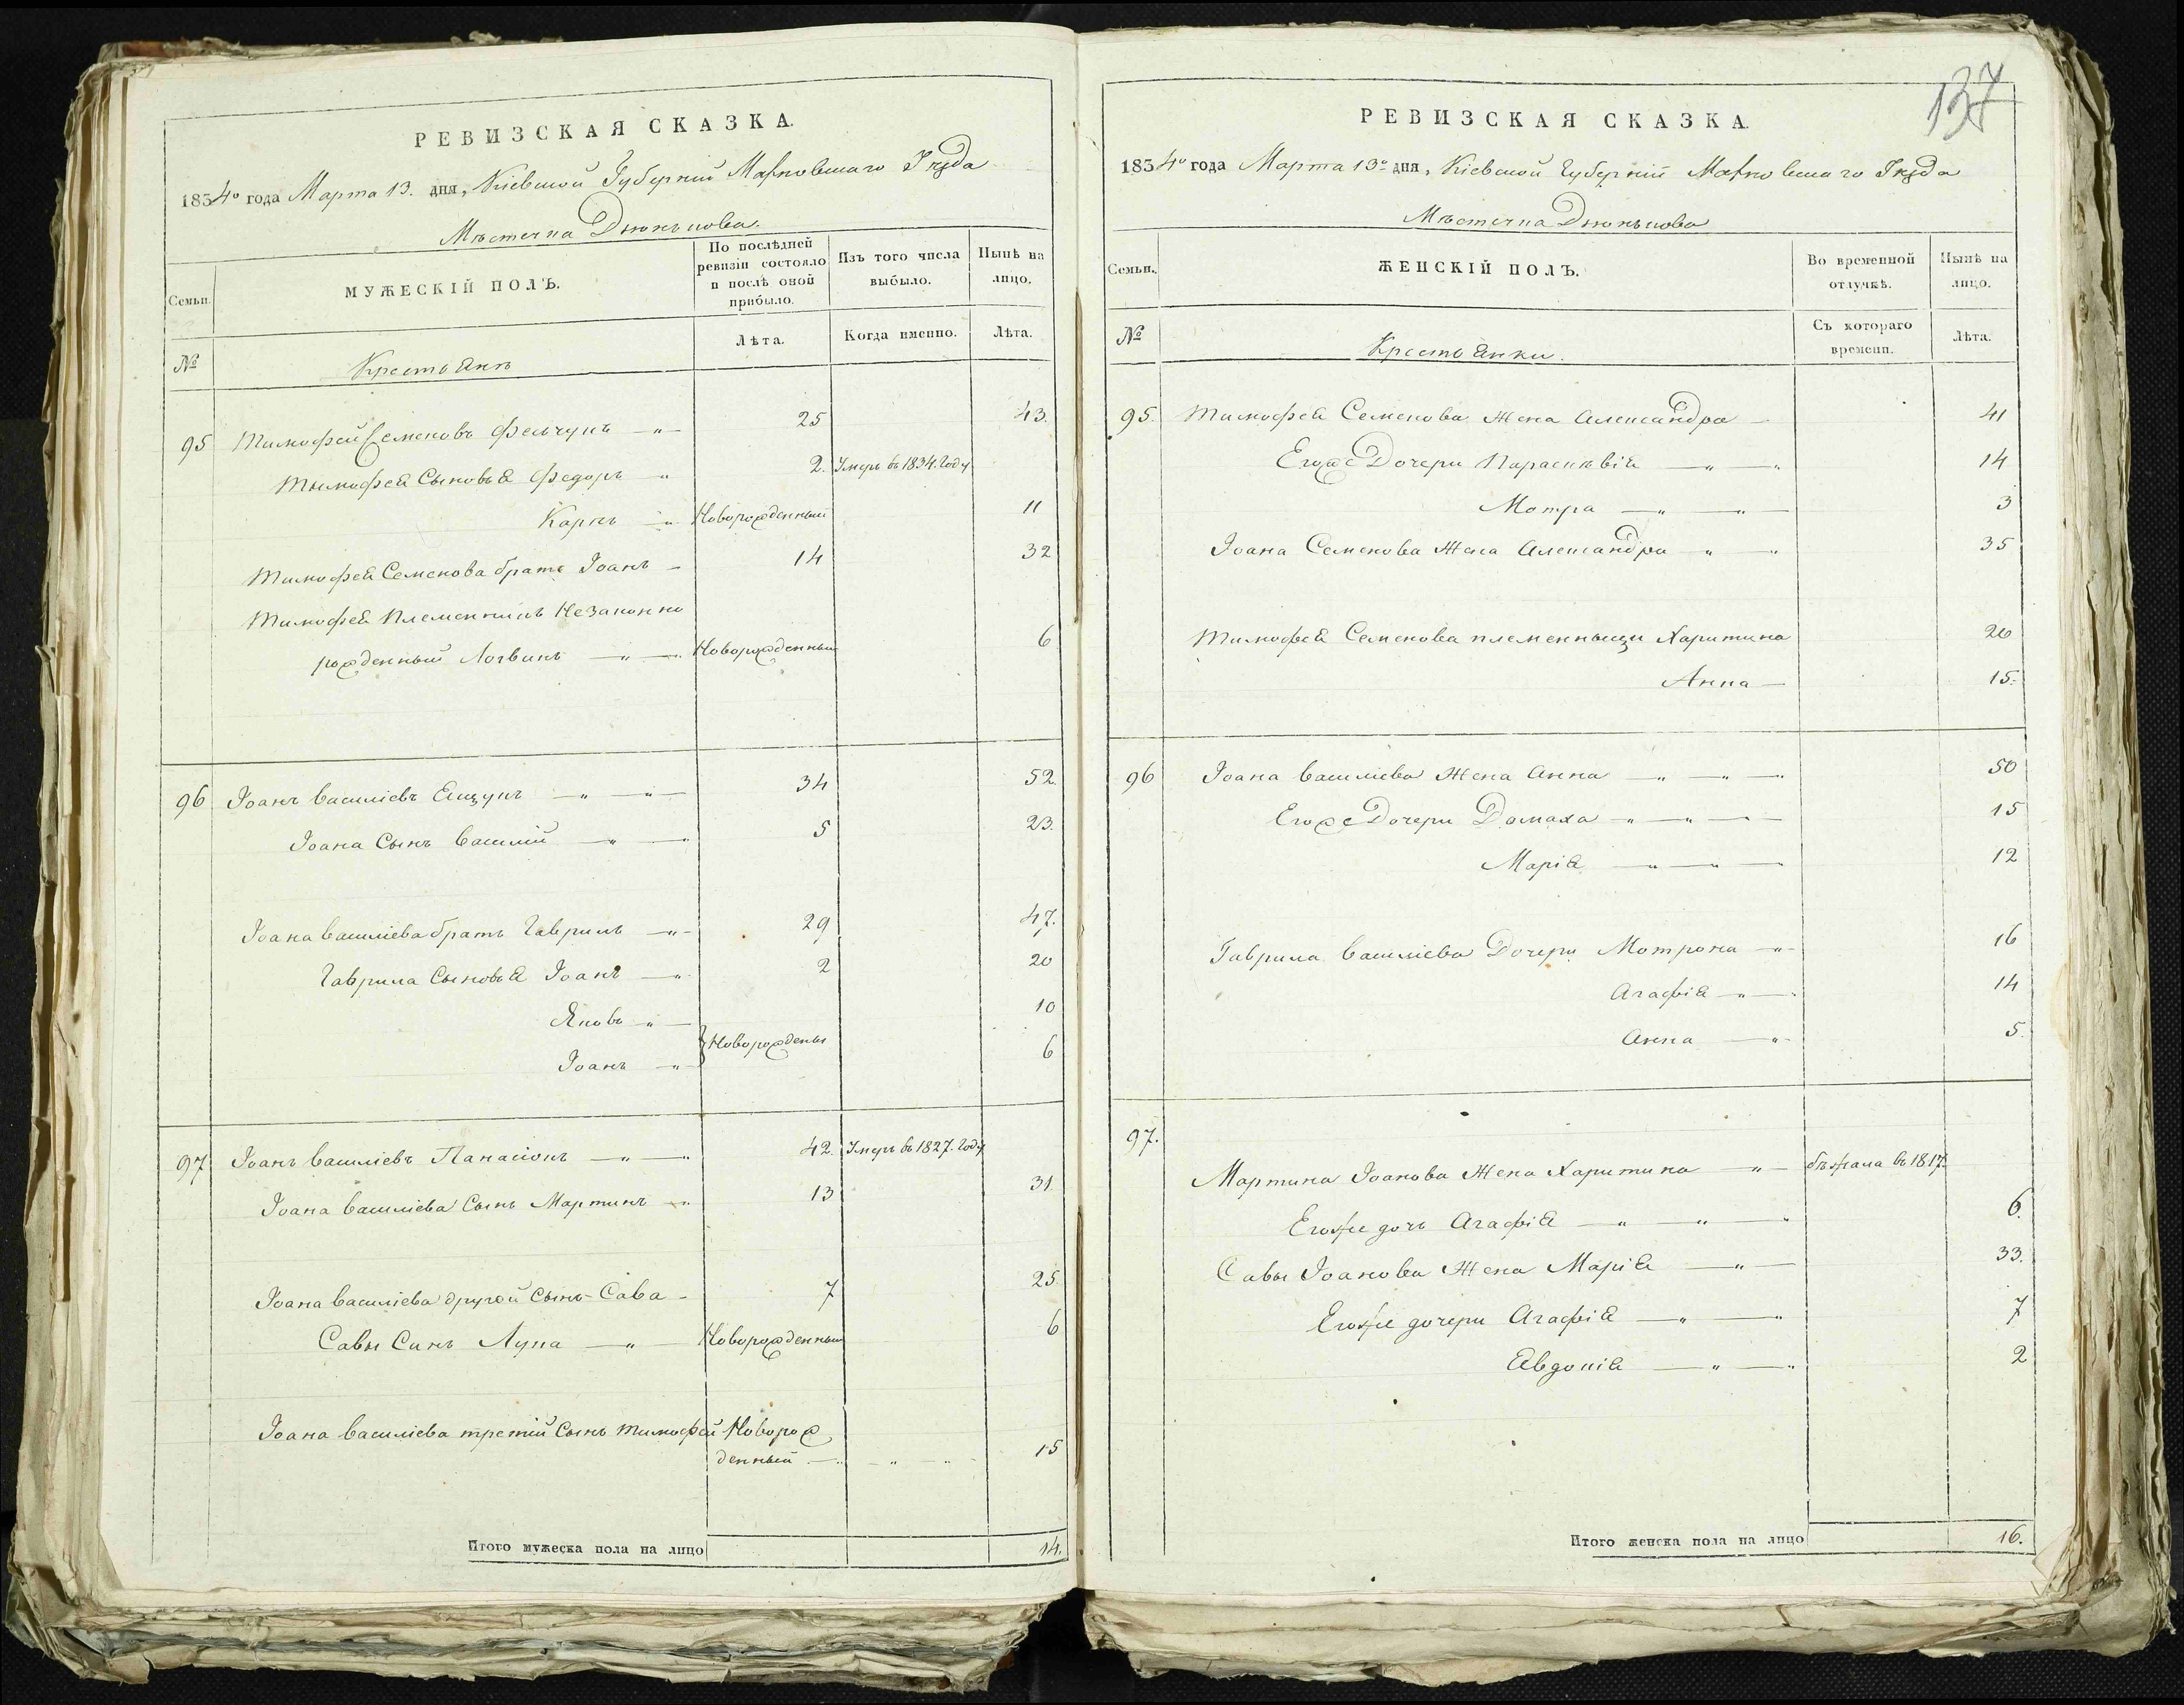 РЕВИЗСКАЯ СКАЗКА.
1834го года Марта 13. дня, Кіевской Губерніи Уезда
Местечка Дюнькова.
Семьи.
МУЖЕСКІЙ ПОЛЪ.
По послѣдней ревизіи состояло и послѣ оной прибыло.
Изъ того числа выбыло.
Нынѣ на лицо.
№
Крестьянъ
Лѣта.
Когда именно.
Лѣта.
95 Тимофей Семеновъ 25 43.
Тимофея Сыновья Федоръ 2. Умеръ въ 1834. Году
Карпъ Новорожденный 11
Тимофея Семенова братъ Іоанъ 14 32
Тимофея Племенникъ Незаконно
рожденный Логвинъ Новорожденный 6
96 Іоанъ Василіевъ 34 52.
Іоана Сынъ Василій 5 23.
Іоана Василіева братъ Гаврилъ 29 47.
Гаврила Сыновья Іоанъ 2 20
Яковъ 10
Новорождены
Іоанъ 6
97 Іоанъ Василіевъ Панасюкъ 42. Умеръ въ 1827. Году
Іоана Василіева Сынъ Мартинъ 13 31.
Іоана Василіева другой Сынъ Сава 7 25
Савы Синъ Лука Новорожденный 6
Іоана Василіева третій Сынъ Тимофей Новорож
денный 15
Итого мужеска пола на лицо 14.
137
РЕВИЗСКАЯ СКАЗКА.
1834го года Марта 13го дня, Кіевской Губерніи Уезда
Местечка Дюнькова
Семьи.
ЖЕНСКІЙ ПОЛЪ.
Во временной отлучкѣ.
Нынѣ на лицо.
№
Крестьянки.
Съ котораго времени.
Лѣта.
95. Тимофея Семенова Жена Александра 41
Егоже Дочери Параскевія 14
Мотра 3
Іоана Семенова Жена Александра 35
Тимофея Семенова племенныци Харитина 20
Анна 15.
96 Іоана Василіева Жена Анна 50
Егоже Дочери Домаха 15
Марія 12
Гаврила Василіева Дочери Мотрона 16
Агафія 14
Анна 5.
97.
Мартина Іоанова Жена Харитина бежала въ 1817.
Егоже дочъ Агафія 6.
Савы Іоанова Жена Марія 33.
Егоже дочери Агафія 7
Евдокія 2
Итого женска пола на лицо 16.